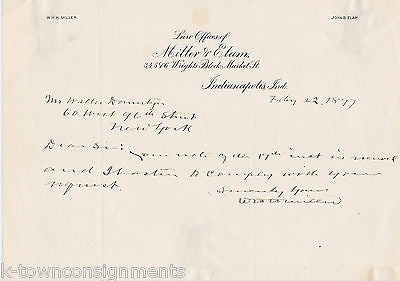 W.H.H. MILLER. JOHN B. ELAM
Law Offices of
Miller & Elam,
Wrights Block, Market St.
Indianapolis, Ind. Feby 22, 1897
Mr Walter
60 West 96th Street
New York
Dear Sir: Your note of the 19th inst is received
and I hasten to comply with your
request.
Sincerely Yours
W H H Miller
k-townconsignments